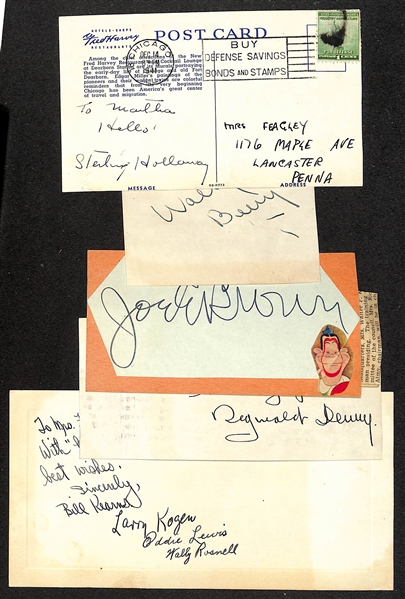 HOTELS · SHOPS
Fred Harvey
RESTAURANTS
POST CARD
Among the
the New
Fred Harvey Restaurant
Cocktail Lounge
at Dearborn Station are
murals portraying
the early-day life of
and old Fort
Dearborn. Edgar Miller's paintings of the
pioneers and their
travel are colorful
reminders that from the very beginning
Chicago has been America's great center
of travel and migration.
CHICAGO
DEC 14
1941
BUY
DEFENSE SAVINGS
BONDS AND STAMPS
1 CENT
To Martha
Hello!
Sterling Holloway
MRS FEAGLEY
1176 MAPLE AVE
LANCASTER
PENNA
MESSAGE
ADDRESS
Wallace
Beery
Joe E Brown
Mrs. Walter
man presiding. The training
mittee of the council, Mrs.
chairman
Reginald Denny
To Mrs.
With
best wishes.
Sincerely,
Bill Kearns
Larry Kogen
Eddie Lewis
Wally Rosnell